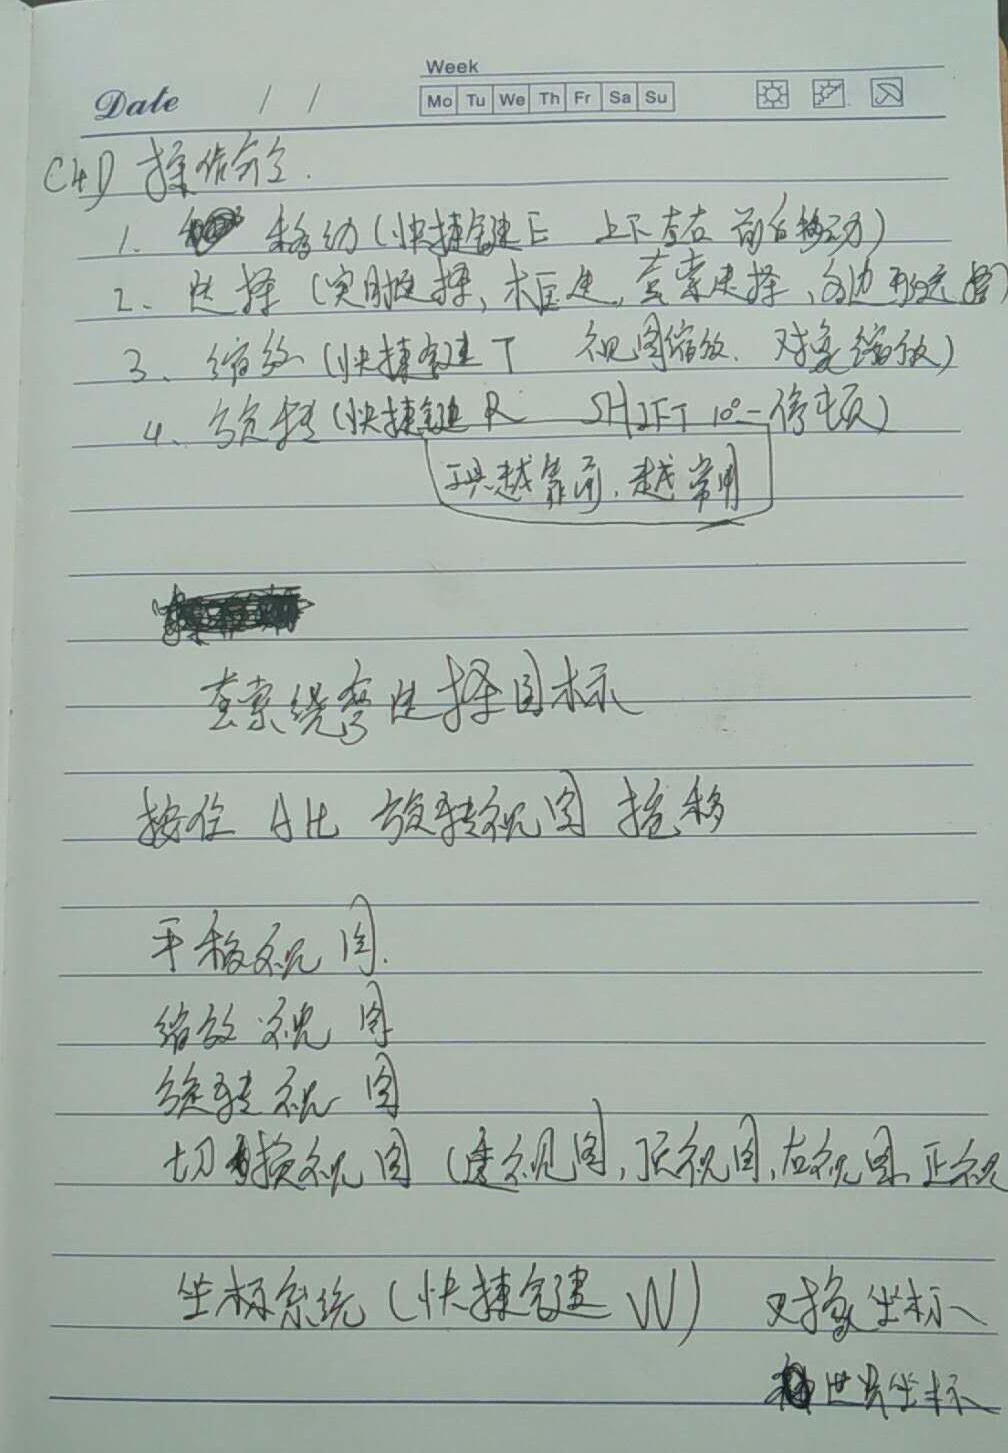 Week
Date / /
Mo Tu We Th Fr Sa Su
C4D 操作命令.
1. 移动(快捷键E 上下左右 前后移动)
2、选择(实时选择,框选,套索选择、多边形选择)
3、缩放(快捷键T 视图缩放. 对象缩放)
4、旋转(快捷键R SHIFT 10°一停顿)
工具越靠前,越常用
套索绕弯选择目标
按住 Alt 旋转视图 拖移
平移视图.
缩放视图
旋转视图
切换视图(透视图,顶视图,右视图,正视
坐标系统(快捷键W) 对象坐标
世界坐标